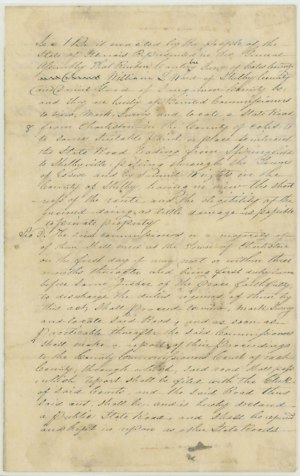 Sec 1 Be it enacted by the people of the
State of Illinois Represented in the General
Assembly That of Coles County
William L. Ward of Shelby County
and of County be
and they are hereby appointed Commissioners
to view, mark, survey and locate a State Road
from Charleston in the County of Coles to
to some suitable point
the State Road leading from Springfield
to Shelbyville passing through the Town
of and by in the
County of Shelby having in view the short
ness of the route, and the eligibility of the
ground, doing as little damage as possible
to private property
Sec 2. The said commissioners or a majority
of them shall meet at the Town of Charleston
on the first day of May next or within three
months thereafter and being first duly sworn
before some Justice of the Peace faithfully
to discharge the duties required of them by
this act, shall proceed to view, mark survey
and locate said Road, and as soon as
practicable thereafter the said Commissioners
shall make a report of their Proceedings
to the County Commissioners Court of each
County, through which said road may pass
which report shall be filed with the Clerk
of said Courts and the said Road thus
laid out shall be and is hereby declared
a Public State Road, and shall be opened
and kept in repair as other State Roads